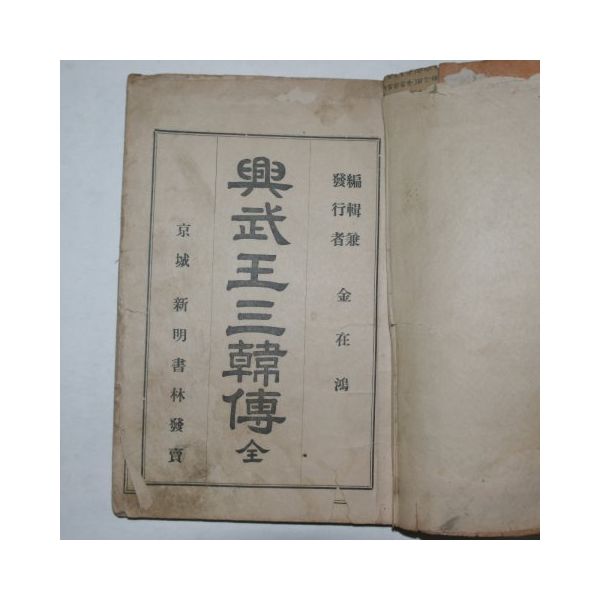 編輯兼
發行者 金在鴻
興武王三韓傳 全
京城 新明書林發賣